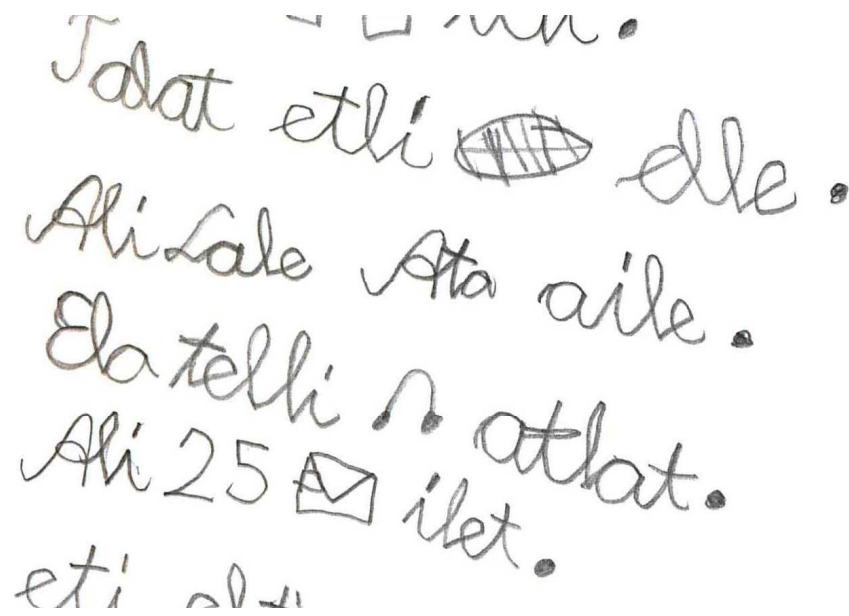 Talat etli elle.
Ali Lale Ata aile.
Ela telli atlat.
Ali 25 ilet.
eti